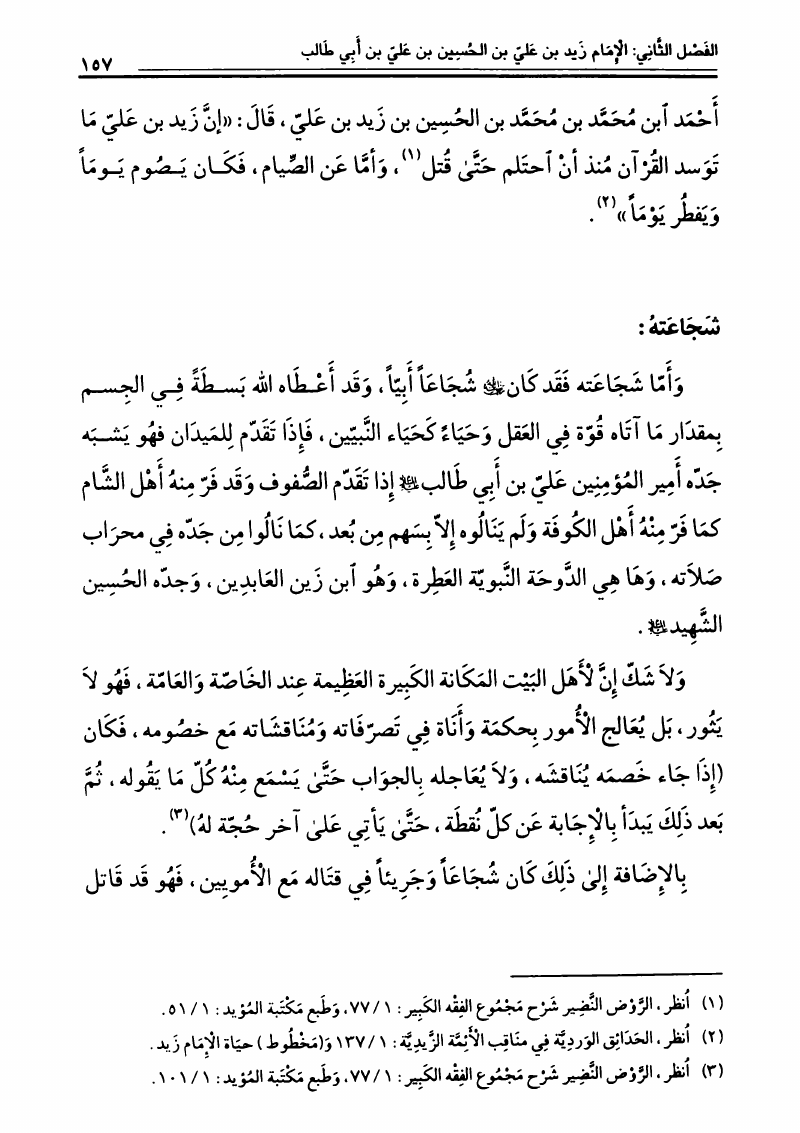 الفَصْل الثَّاني: الْإِمَام زَيد بن عَليّ بن الحُسِين بن عَليّ بن أَبي طَالب
١٥٧
أَحْمَد ٱبن مُحَمَّد بن مُحَمَّد بن الحُسِين بن زَيد بن عَليّ ، قَالَ : «إنَّ زَيد بن عَليّ مَا
تَوَسد القُرْآن مُنذ أنْ ٱحتَلم حَتَّىٰ قُتل(١)، وَأمَّا عَن الصِّيام، فَكَـان يَـصُوم يَـومَاً
وَيَفطُر يَوْمَاً»(٢).
شَجَاعَتهُ :
وَأَمّا شَجَاعَته فَقَد كَان شُجَاعَاً أَبِيّاً، وَقَد أَعْـطَاه الله بَسـطَةً فِـي الجِسـم
بِمقدَار مَا آتَاه قُوّة فِي العَقل وَحَيَاءً كَحَيَاء النَّبيّين ، فَإِذَا تَقَدّم لِلمَيدَان فهُو يَشـبَه
جَدّه أَمِير المُؤمِنِين عَليّ بن أَبي طَالب إذا تَقَدّم الصُّفوف وَقَد فَرّ مِنهُ أَهْل الشَّام
كمَا فَرّ مِنْهُ أَهْل الكُوفَة وَلَم يَنَالُوه إلاّ بِسَهم مِن بُعد ،كمَا نَالُوا مِن جَدّه فِي محرَاب
صَلاَته ، وَهَا هِي الدَّوحَة النَّبويّة العَطِرة ، وَهُو ٱبن زَين العَابدِين ، وَجدّه الحُسِين
الشَّهِيد .
وَلاَ شَكّ إِنَّ لْأَهَل البَيْت المَكَانة الكَبِيرة العَظِيمة عِند الخَاصّة وَالعَامّة ، فَهُو لاَ
يَثُور ، بَل يُعَالج الْأُمور بِحكمَة وَأَنَاة فِي تَصرّفَاته وَمُنَاقشَاته مَع خصُومه ، فَكَان
(إِذَا جَاء خَصمَه يُنَاقشَه ، وَلاَ يُعَاجله بِالجوَاب حَتَّىٰ يَسْمَع مِنْهُ كُلّ مَا يَقُوله ، ثُمَّ
بَعد ذَلِكَ يَبدَأ بِالْإِجَابة عَن كلّ نُقطَة ، حَتَّىٰ يَأتِي عَلىٰ آخر حُجّة لهُ)(٣).
بِالإِضَافة إِلىٰ ذَلِكَ كَان شُجَاعَاً وَجَرِيئاً فِي قتَاله مَع الْأُمويين ، فَهُو قَد قَاتل
(١) اُنظر ، الرَّوْض النَّضِير شَرْح مَجْمُوع الفِقْه الكَبِير : ١ /٧٧، وَطَبع مَكْتَبة المُؤيد : ١ /٥١.
(٢) اُنظر ، الحَدَائِق الوَردِيَّة فِي منَاقِب الْأَئِمَّة الزَّيدِيَّة : ١ /١٣٧ وَ(مَخْطُوط ) حيَاة الْإِمَام زَيد .
(٣) اُنظر ، الرَّوْض النَّضِير شَرْح مَجْمُوع الفِقْه الكَبِير : ١ /٧٧، وَطَبع مَكتَبة المُؤيد : ١ /١٠١.